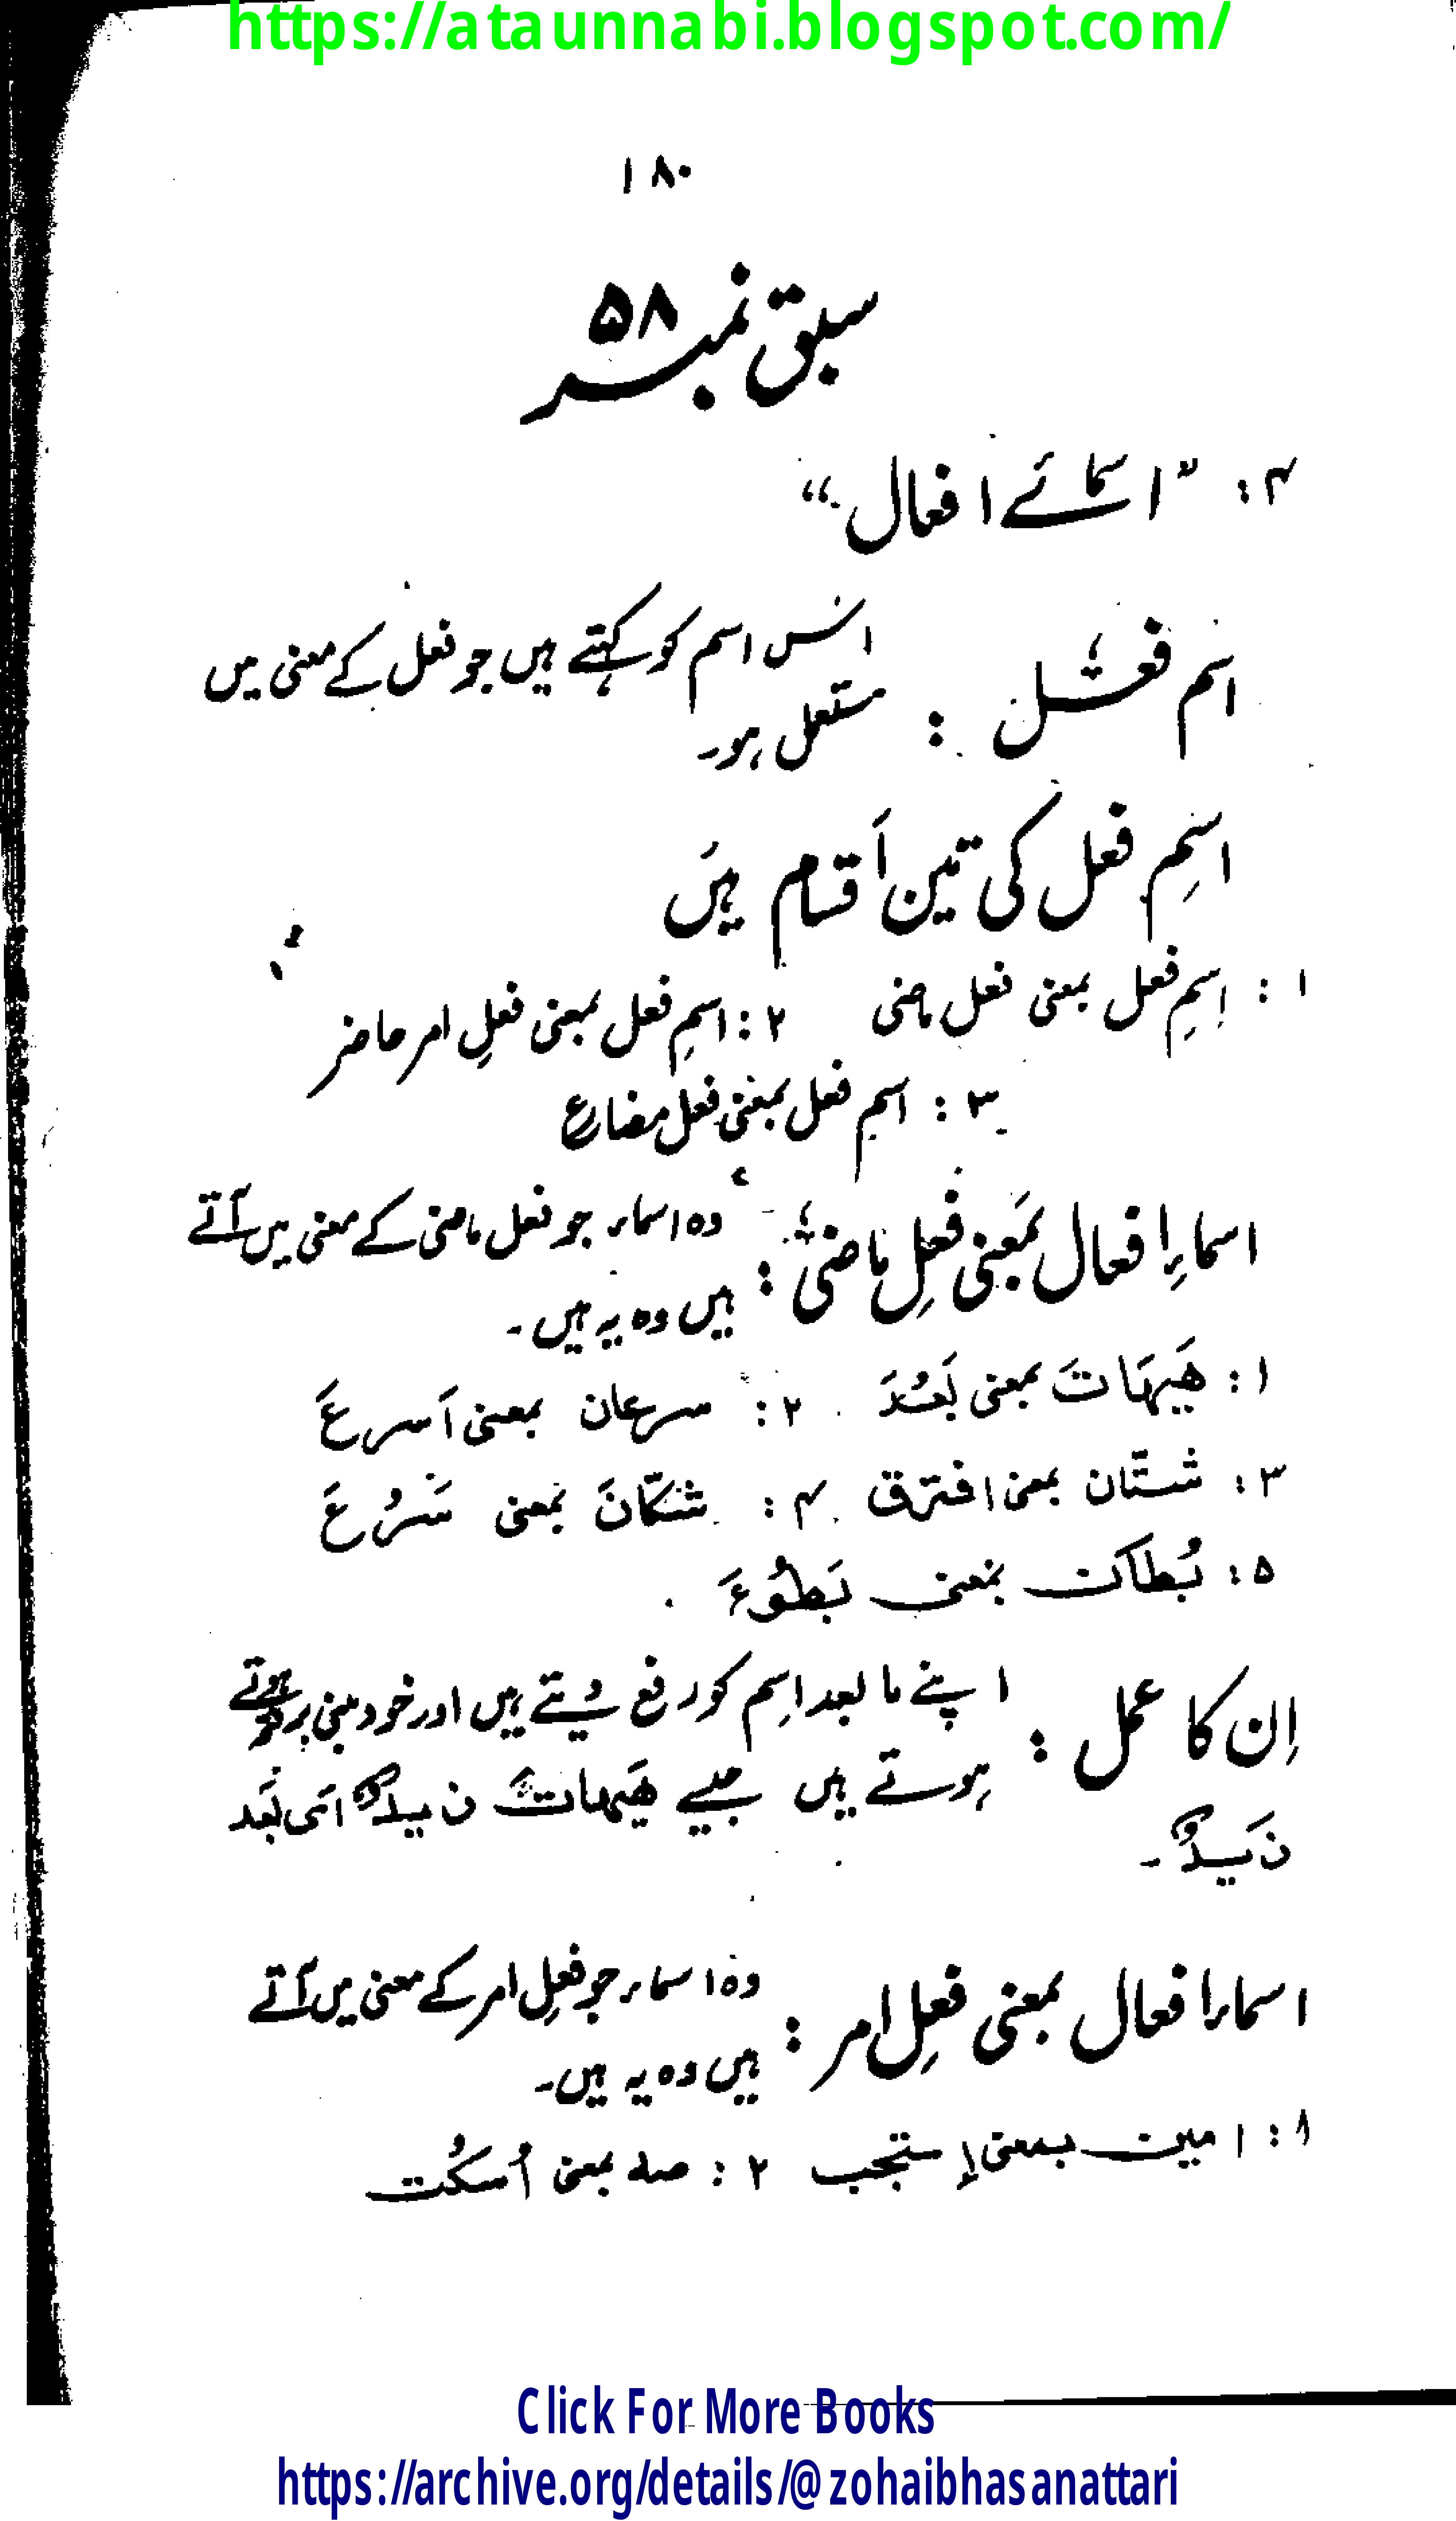 https://ataunnabi.blogspot.com/
۱۸۰
سبق نمبر ۵۸
۴: "اسمائے افعال"
اسم فعل : اس اسم کو کہتے ہیں جو فعل کے معنی میں
مستعمل ہو۔
اسمِ فعل کی تین اَقسام ہیں
۱: اِسمِ فعل بمعنی فعل ماضی ۲: اسمِ فعل بمعنی فعلِ امر حاضر
۳: اسمِ فعل بمعنی فعل مضارع
اسماءِ افعال بمَعنی فعلِ ماضی : وہ اسماء جو فعل ماضی کے معنی میں آتے
ہیں وہ یہ ہیں۔
۱: هَیهَاتَ بمعنی بَعُدَ ۲: سرعان بمعنی اَسرعَ
۳: شتّان بمعنی افترق ۴: شکّانَ بمعنی سَرُعَ
۵: بُطاٰن بمعنی بَطُوءَ
اِن کا عمل : اپنے ما بعد اسِم کو رفع دیتے ہیں اور خود مبنی بر ہوتے
ہوتے ہیں جیسے هَیهاتَ زیدٌ ای بَعُد
زَیدٌ۔
اسماء افعال بمعنی فعلِ امر : وہ اسماء جو فعلِ امر کے معنی میں آتے
ہیں وہ یہ ہیں۔
۱: امین بمعنی إستجب ۲: صہ بمعنی اُسکُت
Click For More Books
https://archive.org/details/@zohaibhasanattari